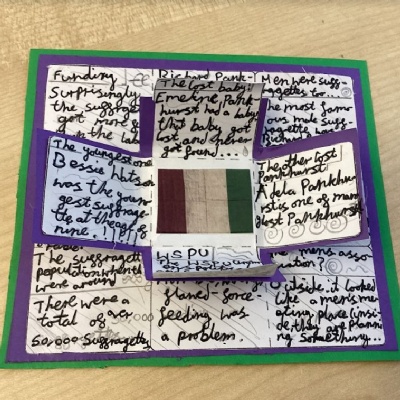 Funding
Surprisingly
the suffrage
got more
Richard Pank-
The lost baby!
Emeline Pank
hurst had a baby
that baby got
lost and never
got found...
Men were suff-
ragettes to...
The most famo
us male suff-
ragette
Richard
The youngest one
Bessie Watson
was the youn-
gest suffraget-
te at the age of
nine.!!
The other lost
Pankhurst
Adela Pankhu
rst is one of many
lost Pankhurst
WSPU
The suffragette
population when th
were around
There were a
total of over
50,000 suffragettes
force-
feeding was
a problem.
mens asso-
iation?
Outside it looked
like a mens me-
eting place (insi-
de, they are planni
ng something...